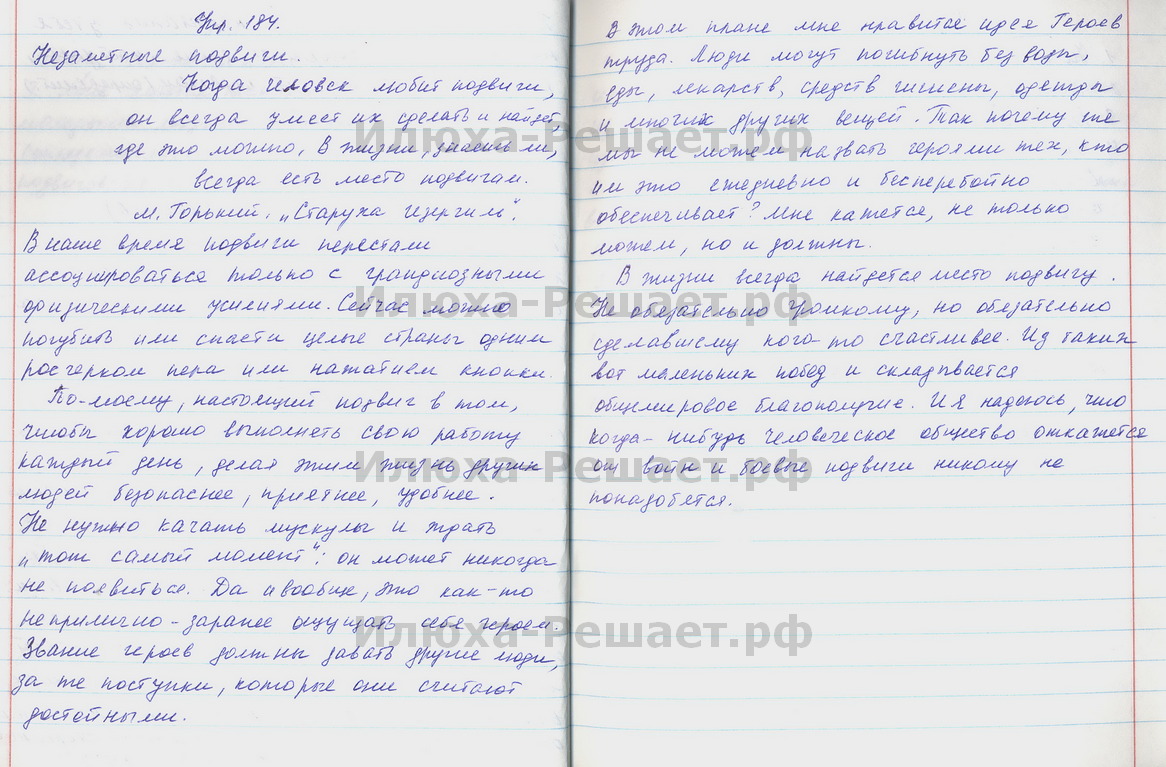 Упр. 184.
Незаметные подвиги.
Когда человек любит подвиги,
он всегда умеет их сделать и найдет,
где это можно, В жизни, знаешь ли,
всегда есть место подвигам.
М. Горький, „Старуха Изергиль“.
В наше время подвиги перестали
ассоциироваться только с грандиозными
физическими усилиями. Сейчас можно
погубить или спасти целые страны одним
росчерком пера или нажатием кнопки.
По-моему, настоящий подвиг в том,
чтобы хорошо выполнять свою работу
каждый день, делая этим жизнь других
людей безопаснее, приятнее, удобнее.
Не нужно качать мускулы и ждать
„тот самый момент“: он может никогда
не появиться. Да и вообще, это как-то
неприлично - заранее ощущать себя героем.
Звание героев должны давать другие люди,
за те поступки, которые они считают
достойными.
В этом плане мне нравится идея Героев
труда. Люди могут погибнуть без воды,
еды, лекарств, средств гигиены, одежды
и многих других вещей. Так почему же
мы не можем назвать героями тех, кто
им это ежедневно и бесперебойно
обеспечивает? Мне кажется, не только
можем, но и должны.
В жизни всегда найдется место подвигу.
Не обязательно громкому, но обязательно
сделавшему кого-то счастливее. Из таких
вот маленьких побед и складывается
общемировое благополучие. И я надеюсь, что
когда-нибудь человеческое общество откажется
от войн и боевые подвиги никому не
понадобятся.
Илюха-Решает.рф
Илюха-Решает.рф
Илюха-Решает.рф
Илюха-Решает.рф